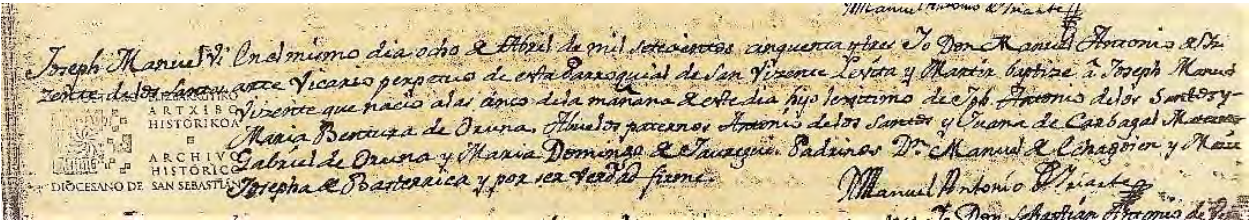 Manuel Antonio de Iriarte
Joseph Manuel Vi En el mismo dia ocho de Abril de mil setecientos cinquenta y tres Yo Don Manuel Antonio de Iri
zente de los Santos arte Vicario perpetuo de esta Parroquial de San Vizente Levita y Martir baptize â Joseph Manuel
Vizente que nacio a las cinco de la mañana de este dia hijo lexitimo de Jph. Antonio de los Santos y
Maria Bentura de Oruna, Abuelos paternos Antonio de los Santos y Juana de Carbagal Maternos
Gabriel de Oruna y Maria Domingo de Jauregui. Padrinos Dn. Manuel de y Maria
Josepha de Basterrica y por ser verdad firme.
Manuel Antonio de Iriarte
Yo Don Sebastian Antonio de
ELIZBARRUTIKO
ARTXIBO
HISTORIKOA
ARCHIVO
HISTÓRICO
DIOCESANO DE SAN SEBASTIÁN